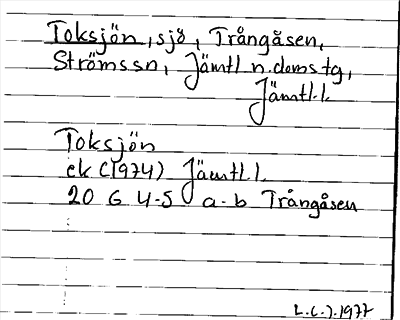 Toksjön, sjö, Trångåsen,
Strömssn, Jämtl n. doms tg,
Jämtl. l.
Toksjön
ek (1974) Jämtl. l.
20 G 4-5 a-b Trångåsen
L.C.J. 1977